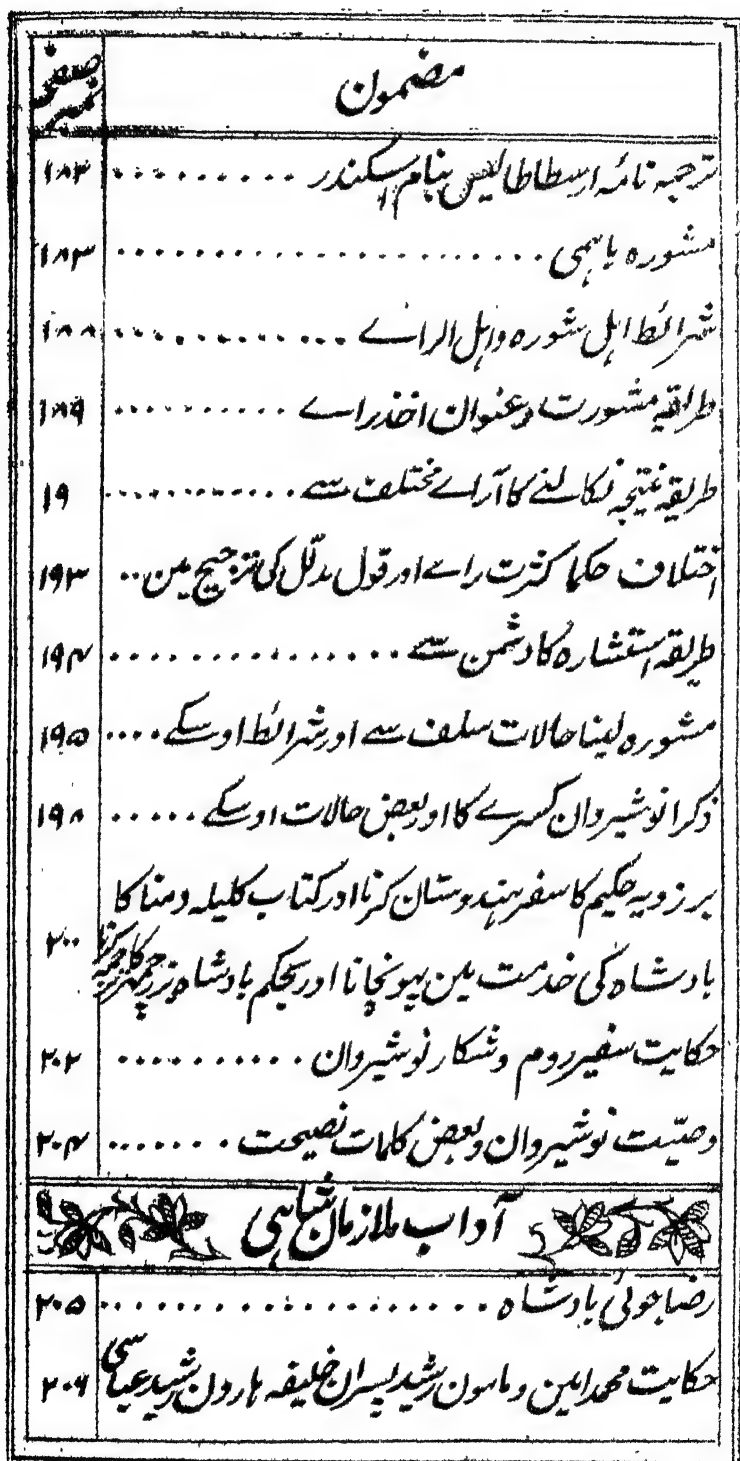 مضمون صفحہ نمبر
ترجمہ نامۂ ارسطاطالیس بنام اسکندر .......... ۱۸۳
مشورہ باہمی ...................... ۱۸۳
شرائط اہل شورہ و اہل الراے ............ ۱۸۸
طریقہ مشورت و عنوان اخذ راے .......... ۱۸۹
طریقہ نتیجہ نکالنے کا آراے مختلف سے ............ ۱۹
اختلاف حکما کثرت راے اور قول مدلّل کی ترجیح مین .. ۱۹۳
طریقہ استشارہ کا دشمن سے ................ ۱۹۴
مشورہ لینا حالات سلف سے اور شرائط اوسکے .... ۱۹۵
ذکر انوشیروان کسرے کا اور بعض حالات اوسکے ..... ۱۹۸
برزویہ حکیم کا سفر ہندوستان کرنا اور کتاب کلیلہ دمنا کا
بادشاہ کی خدمت مین پہونچانا اور بحکم بادشاہ بزرجمہر کا ترجمہ کرنا ۲۰۰
حکایت سفیر روم و شکار نوشیروان ........... ۲۰۲
وصیّت نوشیروان و بعض کلمات نصیحت ....... ۲۰۴
آداب ملازمان شاہی
رضا جوئی بادشاہ .................... ۲۰۵
حکایت محمد امین و مامون رشید پسران خلیفہ ہارون رشید عباسی ۲۰۶